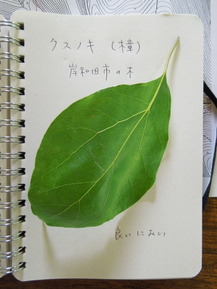 クスノキ (樟)
岸和田市の木
良いにおい